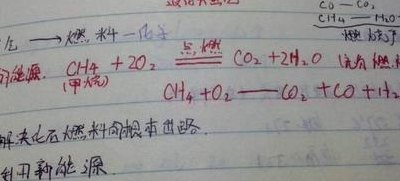 CO — CO₂
CH₄ — H₂O
→ 燃料 — 化学
能源. CH₄ + 2O₂ 点燃 CO₂ + 2H₂O
(甲烷)
CH₄ + O₂ —— CO₂ + CO + H₂
解决化石燃料的根本出路.
利用新能源